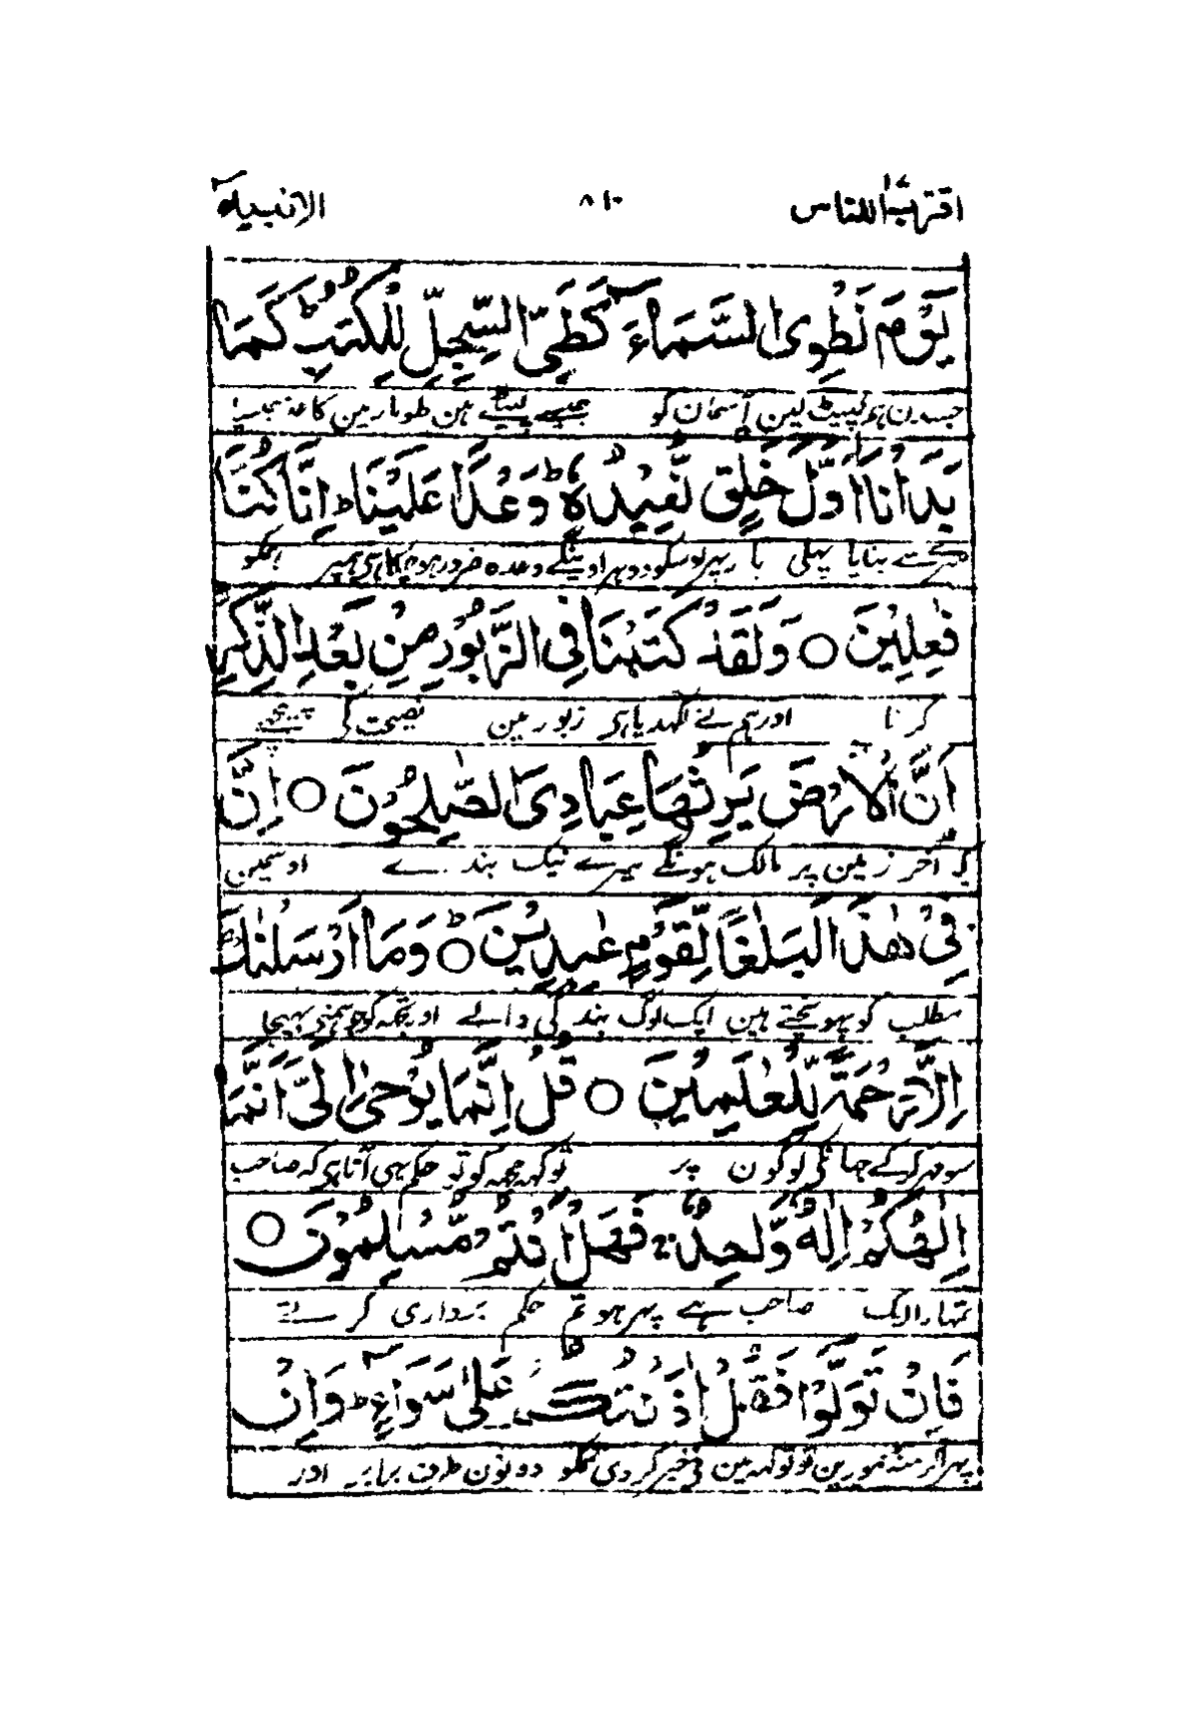 اقترب للناس ١٧ ٨١٠ الانبياء
يَوْمَ نَطْوِى السَّمَآءَ كَطَيِّ السِّجِلِّ لِلْكُتُبِ ؕ كَمَا
جسدن ہم لپیٹ لین آسمان کو جیسے لپیٹتے ہین طومارمین کاغذ جیسا
بَدَاْنَا اَوَّلَ خَلْقٍ نُّعِيْدُهٗ ؕ وَعْدًا عَلَيْنَا ؕ اِنَّا كُنَّا
سرے سے بنایا پہلی بار پہر اوسکو دوہراوینگے وعدہ ضرور ہوچکا ہی ہمپر ہمکو
فٰعِلِيْنَ ○ وَلَقَدْ كَتَبْنَا فِى الزَّبُوْرِ مِنْۢ بَعْدِ الذِّكْرِ
کرنا اور ہم نے لکھدیا ہی زبور مین نصیحت کی پیچھے
اَنَّ الْاَرْضَ يَرِثُهَا عِبَادِىَ الصّٰلِحُوْنَ ○ اِنَّ
کہ آخر زمین پر مالک ہونگے میرے نیک بندے اوسمین
فِىْ هٰذَا لَبَلٰغًا لِّقَوْمٍ عٰبِدِيْنَ ○ؕ وَمَا اَرْسَلْنٰكَ
مطلب کو پہونچتے ہین ایک لوگ بندگی والے اور تجکو جو ہمنی بہیجا
اِلَّا رَحْمَةً لِّلْعٰلَمِيْنَ ○ قُلْ اِنَّمَا يُوْحٰٓى اِلَىَّ اَنَّمَا
سو مہر کرکے جہانکی لوگون پر توکہہ مجہ کو تو حکم یہی آتا ہی کہ صاحب
اِلٰهُكُمْ اِلٰهٌ وَّاحِدٌ ۚ فَهَلْ اَنْتُمْ مُّسْلِمُوْنَ ○
تمہارا ایک صاحب ہے پہر ہو تم حکم برداری کرتے
فَاِنْ تَوَلَّوْا فَقُلْ اٰذَنْتُكُمْ عَلٰى سَوَآءٍ ؕ وَاِنْ
پہر اگر منہ موڑین تو توکہہ مین نے خبر کردی تمکو دونون طرف برابر اور